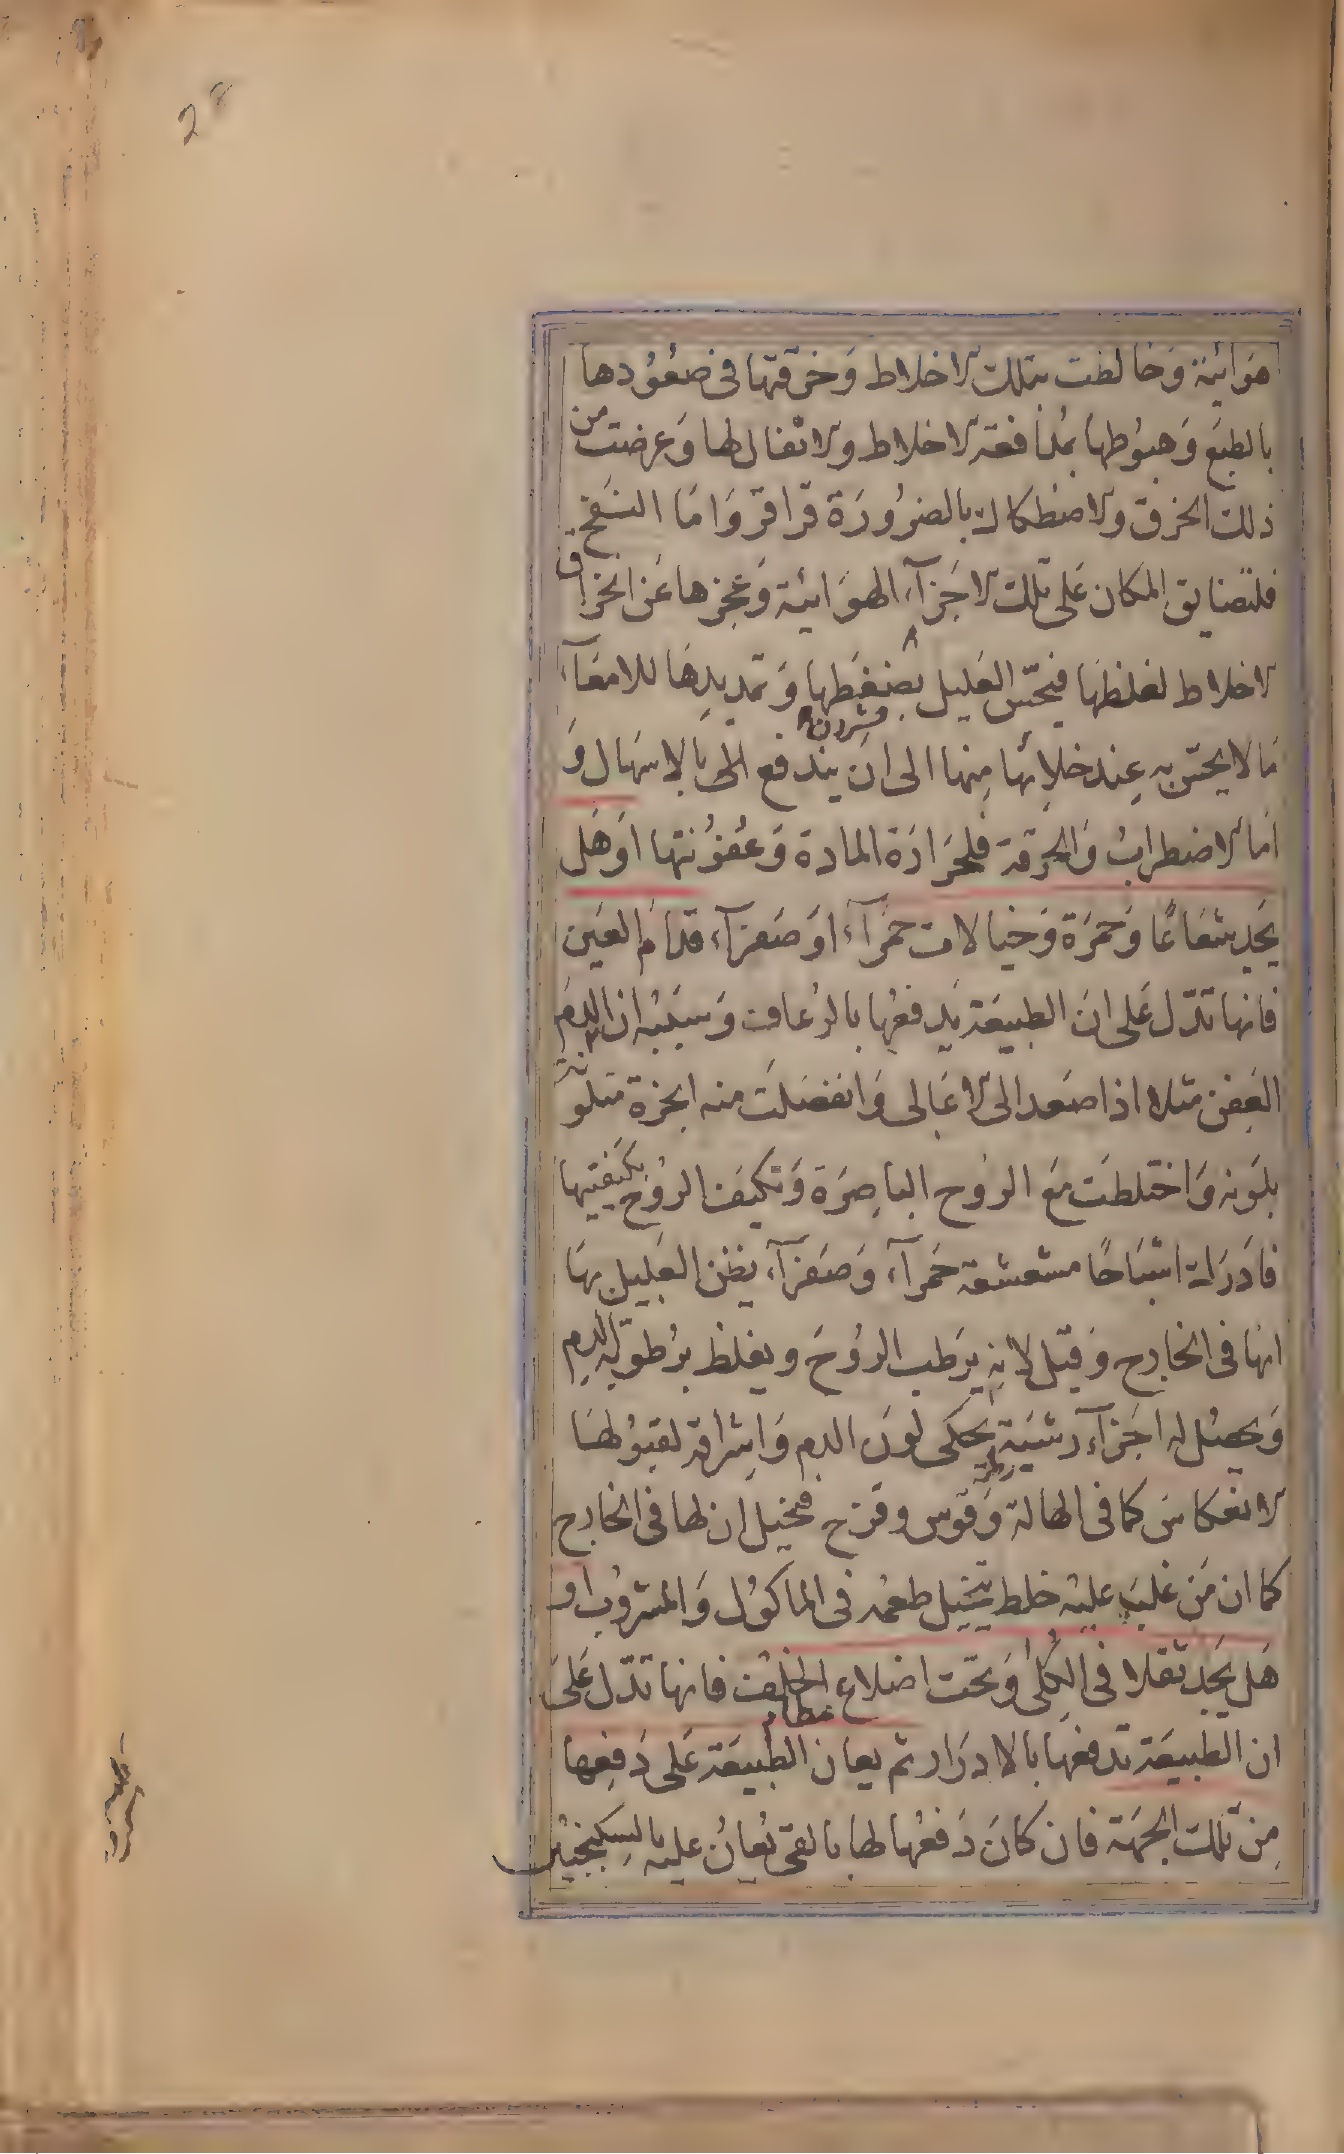 28
هوائية وخالطت بتلك الاخلاط وخرقتها فى صعودها
بالطبع وهبوطها بمدافعة الاخلاط والاثفال لها وعرضت من
ذلك الخرق والاصطكاك بالضرورة قراقر واما النفخ
فلتضايق المكان على تلك الاجزاء الهوائية وعجزها عن انخراق
الاخلاط لغلظها فيحس العليل بضغطها وتمديدها للامعاء
ما لا يحس به عند خلائها منها الى ان يندفع بالاسهال و
اما الاضطراب والحرقة فلحرارة المادة وعفونتها او هل
يجد شعاعا وحمرة وخيالات حمراء او صفراء قدام العين
فانها تدل على ان الطبيعة يدفعها بالرعاف وسببه ان الدم
العفن مثلا اذا صعد الى الاعالى وانفصلت منه ابخرة متلونة
بلونه واختلطت مع الروح الباصرة وتكيف الروح بكيفيتها
فادرك اشباحا مشعشعة حمراء وصفراء يظن العليل بها
انها فى الخارج وقيل لانه يرطب الروح ويغلظ برطوبة الدم
ويحصل له اجزاء رشية يحكى لون الدم واشراقه لقبولها
الانعكاس كما فى الهالة وقوس وقزح فيخيل ان لها فى الخارج
كما ان من غلب عليه خلط يتخيل طعمه فى الماكول والمشروب او
هل يجد ثقلا فى الكلى وتحت اضلاع الخلف فانها تدل على
ان الطبيعة تدفعها بالادرار ثم يعان الطبيعة على دفعها
من تلك الجهة فان كان دفعها لها بالقى يعان عليه بالسكنجبين